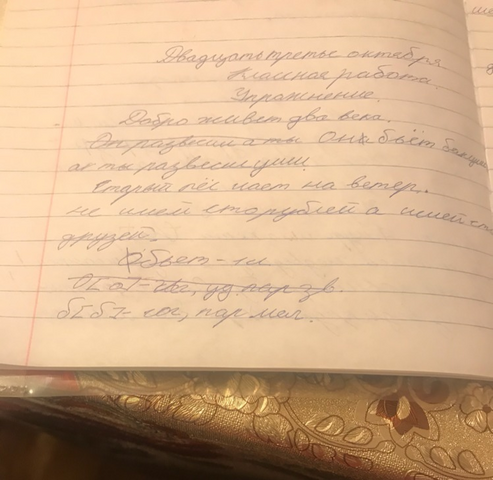 Двадцать третье октября
Классная работа.
Упражнение.
Добро живёт два века.
а ты Он бьёт
а ты развесил уши.
Старый пёс лает на ветер.
не имей сторублей а имей ст
друзей.
бьет-1сл
зв.
б[б]-сог, пар